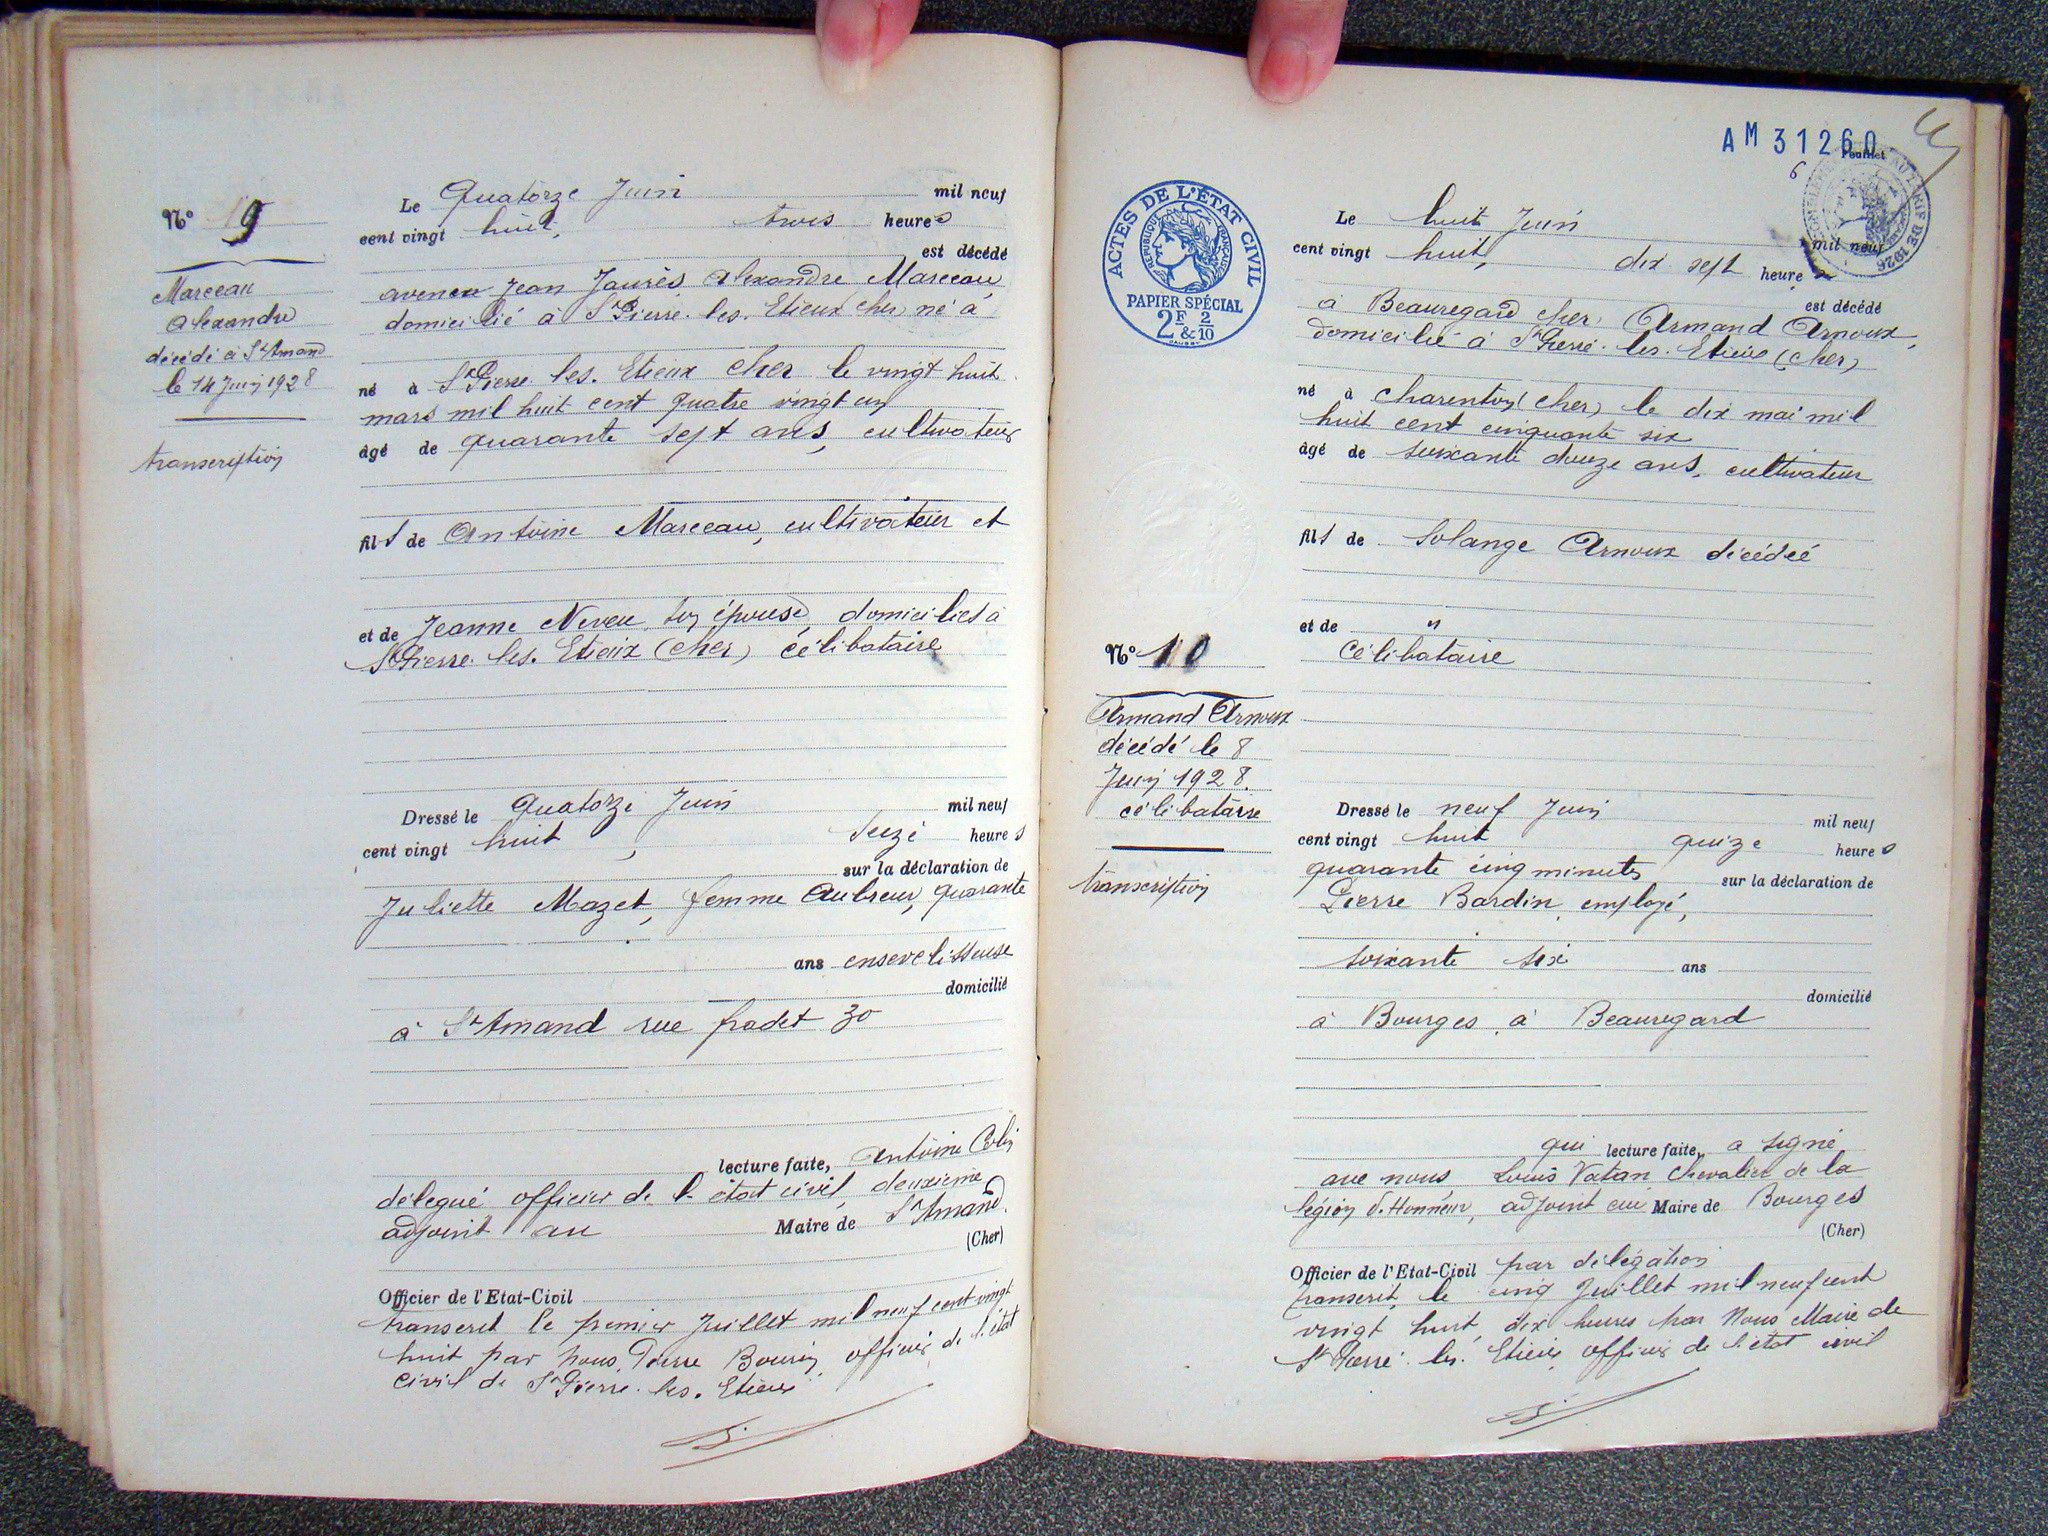 Nº 19
Marceau
Alexandre
décédé à St Amand
le 14 Juin 1928
transcription
Le Quatorze Juin mil neuf
cent vingt huit, trois heures
est décédé
avenue Jean Jaurès Alexandre Marceau
domicilié à St Pierre les Etieux cher né à
né à St Pierre les Etieux Cher le vingt huit
mars mil huit cent quatre vingt un
âgé de quarante sept ans, cultivateur
fils de Antoine Marceau, cultivateur et
et de Jeanne Neveu son épouse domiciliés à
St Pierre les Etieux (Cher) célibataire
Dressé le Quatorze Juin mil neuf
cent vingt huit, Seize heures
sur la déclaration de
Juliette Mazet, femme quarante
ans ensevelisseuse
domicilié
à St Amand rue fradet 30
lecture faite, Antoine
délégué officier de l'état civil, deuxième
adjoint au Maire de St Amand
(Cher)
Officier de l'Etat-Civil
transcrit le premier Juillet mil neuf cent vingt
huit par nous Pierre officier de l'état
civil de St Pierre les Etieux
AM 31260
Feuillet
6
ACTES DE L'ÉTAT CIVIL
RÉPUBLIQUE FRANÇAISE
PAPIER SPÉCIAL
2F & 2/10
Le huit Juin mil neuf
cent vingt huit, dix sept heures
est décédé
à Beauregard cher, Armand Arnoux,
domicilié à St Pierre les Etieux (Cher)
né à Charenton (cher) le dix mai mil
huit cent cinquante six
âgé de soixante douze ans, cultivateur
fils de Solange Arnoux décédée
et de "
célibataire
Nº 10
Armand Arnoux
décédé le 8
Juin 1928.
célibataire
transcription
Dressé le neuf Juin mil neuf
cent vingt huit quize heures
quarante cinq minutes sur la déclaration de
Pierre Bardin, employé,
soixante six ans
domicilié
à Bourges à Beauregard
qui lecture faite, a signé
ave nous Louis Vatan Chevalier de la
légion d'Honneur, adjoint au Maire de Bourges
(Cher)
Officier de l'Etat-Civil par délégation
transcrit le cinq Juillet mil neuf cent
vingt huit, dix heures par Nous Maire de
St Pierre les Etieux officier de l'état civil